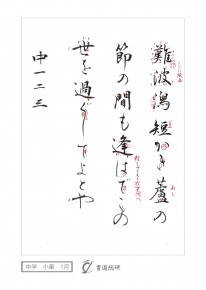 難波潟短かき蘆の
節の間も逢はでこの
世を過ぐしてよとや
中一二三
中学 小筆 1月
書道総研